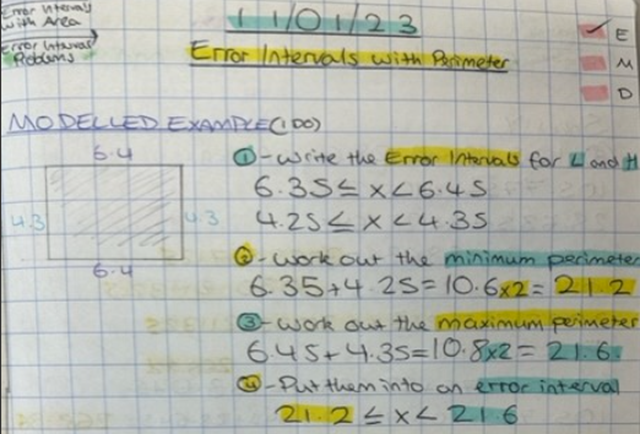 Error Intervals
with Area
Error Intervals
Problems
11/01/23
Error Intervals with Perimeter
E
M
D
MODELLED EXAMPLE (I DO)
6.4
4.3
4.3
6.4
① - Write the Error Intervals for L and H
6.35 ≤ x < 6.45
4.25 ≤ x < 4.35
② - Work out the minimum perimeter
6.35+4.25=10.6x2=21.2
③ - Work out the maximum perimeter
6.45+4.35=10.8x2=21.6.
④ - Put them into an error interval
21.2 ≤ x < 21.6